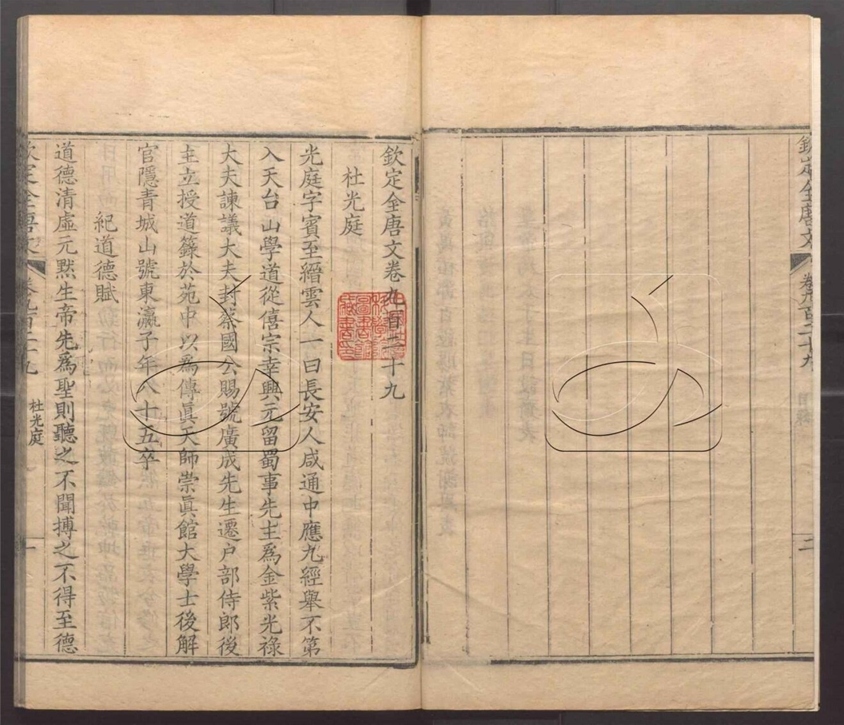 欽定全唐文
卷九百二十九
二
欽定全唐文卷九百二十九
杜光庭
光庭字賓至縉雲人一曰長安人咸通中應九經舉不第
入天台山學道從僖宗幸興元留蜀事先主為金紫光祿
大夫諫議大夫封蔡國公賜號廣成先生遷户部侍郎後
主立授道籙於苑中以為傳眞天師崇眞館大學士後解
官隱青城山號東瀛子年八十五卒
紀道德賦
道德清虛元默生帝先為聖則聽之不聞搏之不得至德
欽定全唐文
卷九百二十九
杜光庭
一